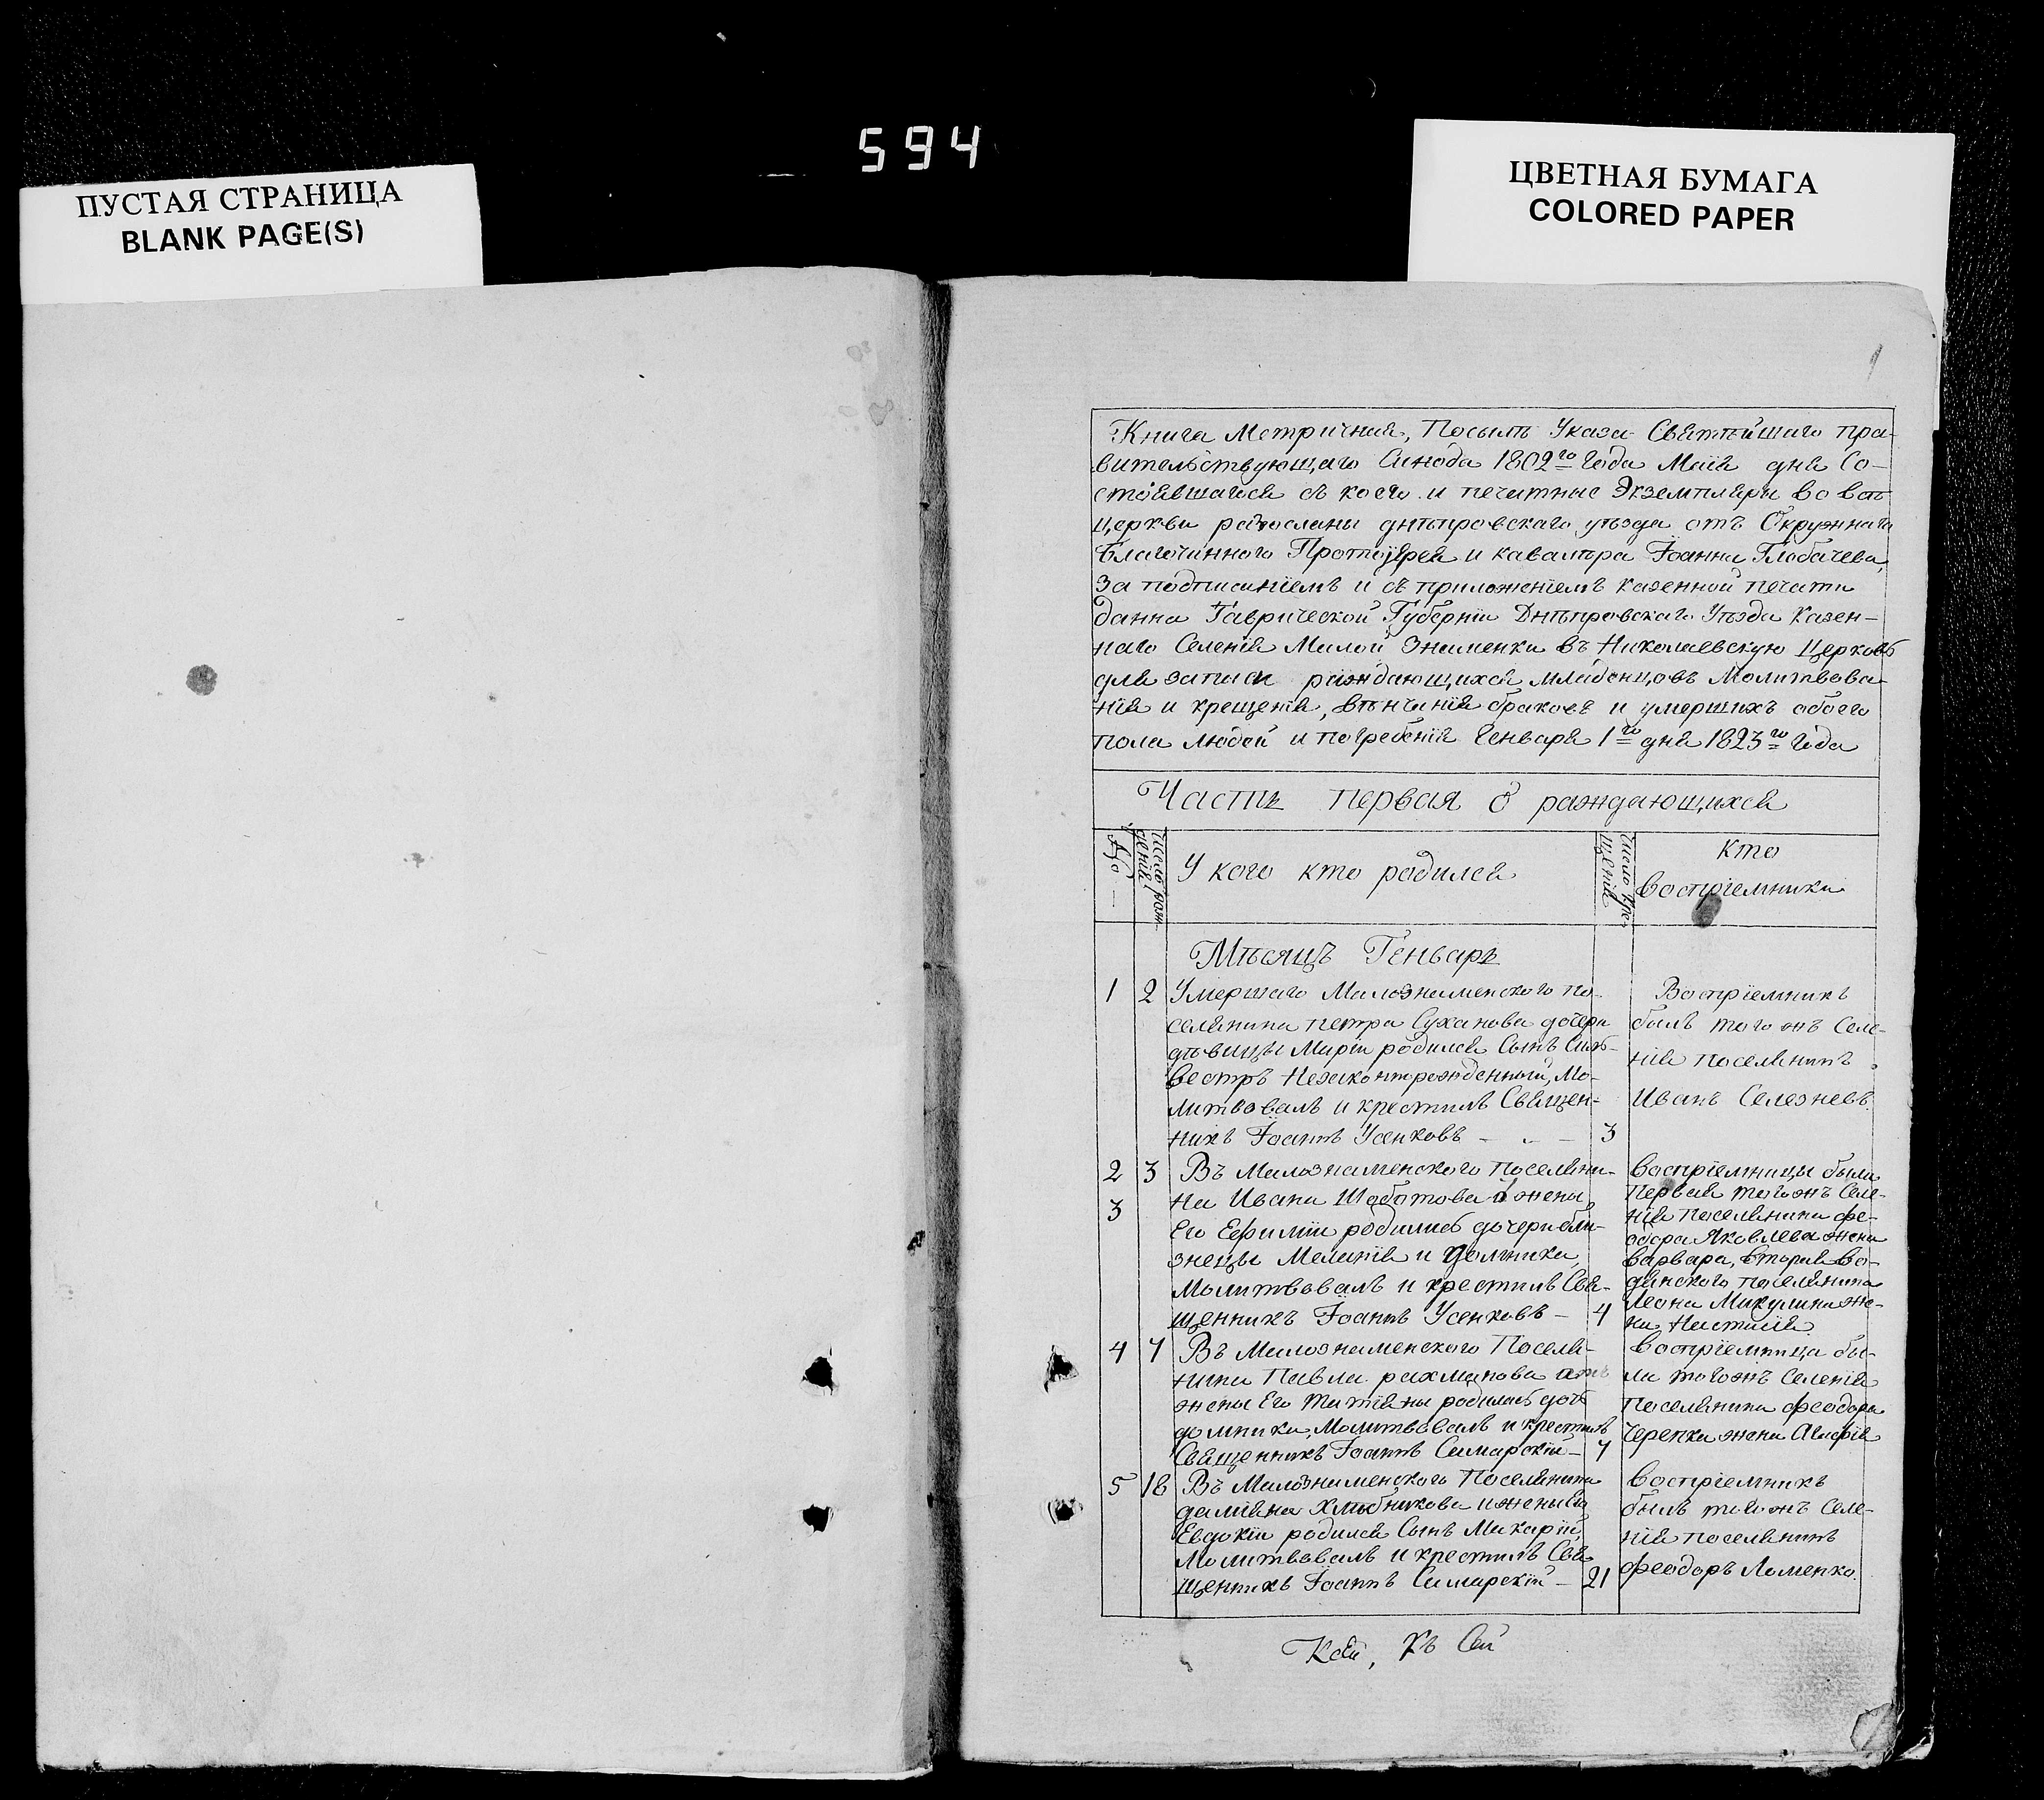 594
ПУСТАЯ СТРАНИЦА
BLANK PAGE(S)
ЦВЕТНАЯ БУМАГА
COLORED PAPER
1
Книга Метричная, Посылѣ Указа Святѣйшаго пра-
вительствующаго Синода 1802го Года Маія дня Со-
стоявшагося съ коего и печатные Экземпляры во всѣ
церкви разосланы днѣпровскаго уѣзда отъ Окружнаго
Благочиннаго Протоіерея и кавалера Іоанна Глобачева,
За подписаніемъ и съ приложеніемъ казенной печати
данна Таврической Губерніи Днѣпровскаго Уѣзда Казен-
наго Селенія Малой Знаменки въ Николаевскую Церковь
для записи раждающихся младенцовъ Молитвова-
нія и крещенія, вѣнчанія браковъ и умершихъ обоего
пола людей и погребенія Генваря 1го дня 1823го Года
Часть первая о раждающихся
№
число рож-
денія
У кого кто родился
число кре-
щенія
Кто
воспріемники
Мѣсяцъ Генварь
1 2 Умершаго Малознаменского по-
селянина петра Суханова дочери
дѣвицы Маріи родился Сынъ Силь-
вестръ Незаконорожденный, Мо-
литвовалъ и крестилъ Священ-
никъ Іоаннъ Усенковъ - - - 3
Воспріемникъ
былъ того жъ Селе-
нія поселянинъ
Иванъ Селезневъ.
2 3 Въ Малознаменского поселяни-
3 на Ивана Шаботова и жены
Его Ефиміи родились дочери бли-
знецы Меланія и Домника,
Молитвовалъ и крестилъ Свя-
щенникъ Іоаннъ Усенковъ - 4
воспріемницы были
Первая того жъ Селе-
нія поселянина фе-
одора Яковлева жена
варвара, вторая Во-
дянского поселянина
Леона Микулина же-
на Настасія
4 7 Въ Малознаменского Поселя-
нина Павла рахманова отъ
жены Его Татіаны родилась дочь
домника, Молитвовалъ и крестилъ
Священникъ Іоаннъ Самарскій - 7
воспріемница бы-
ла того жъ Селенія
Поселянина феодора
Черепки жена Агафія
5 18 Въ Малознаменского Поселянина
даміана Хлѣбникова и жены Его
Евдокіи родился Сынъ Макарій,
Молитвовалъ и крестилъ Свя-
щенникъ Іоаннъ Самарскій - 21
воспріемникъ
былъ того жъ Селе-
нія поселянинъ
феодоръ Ломенко.
Къ Сей